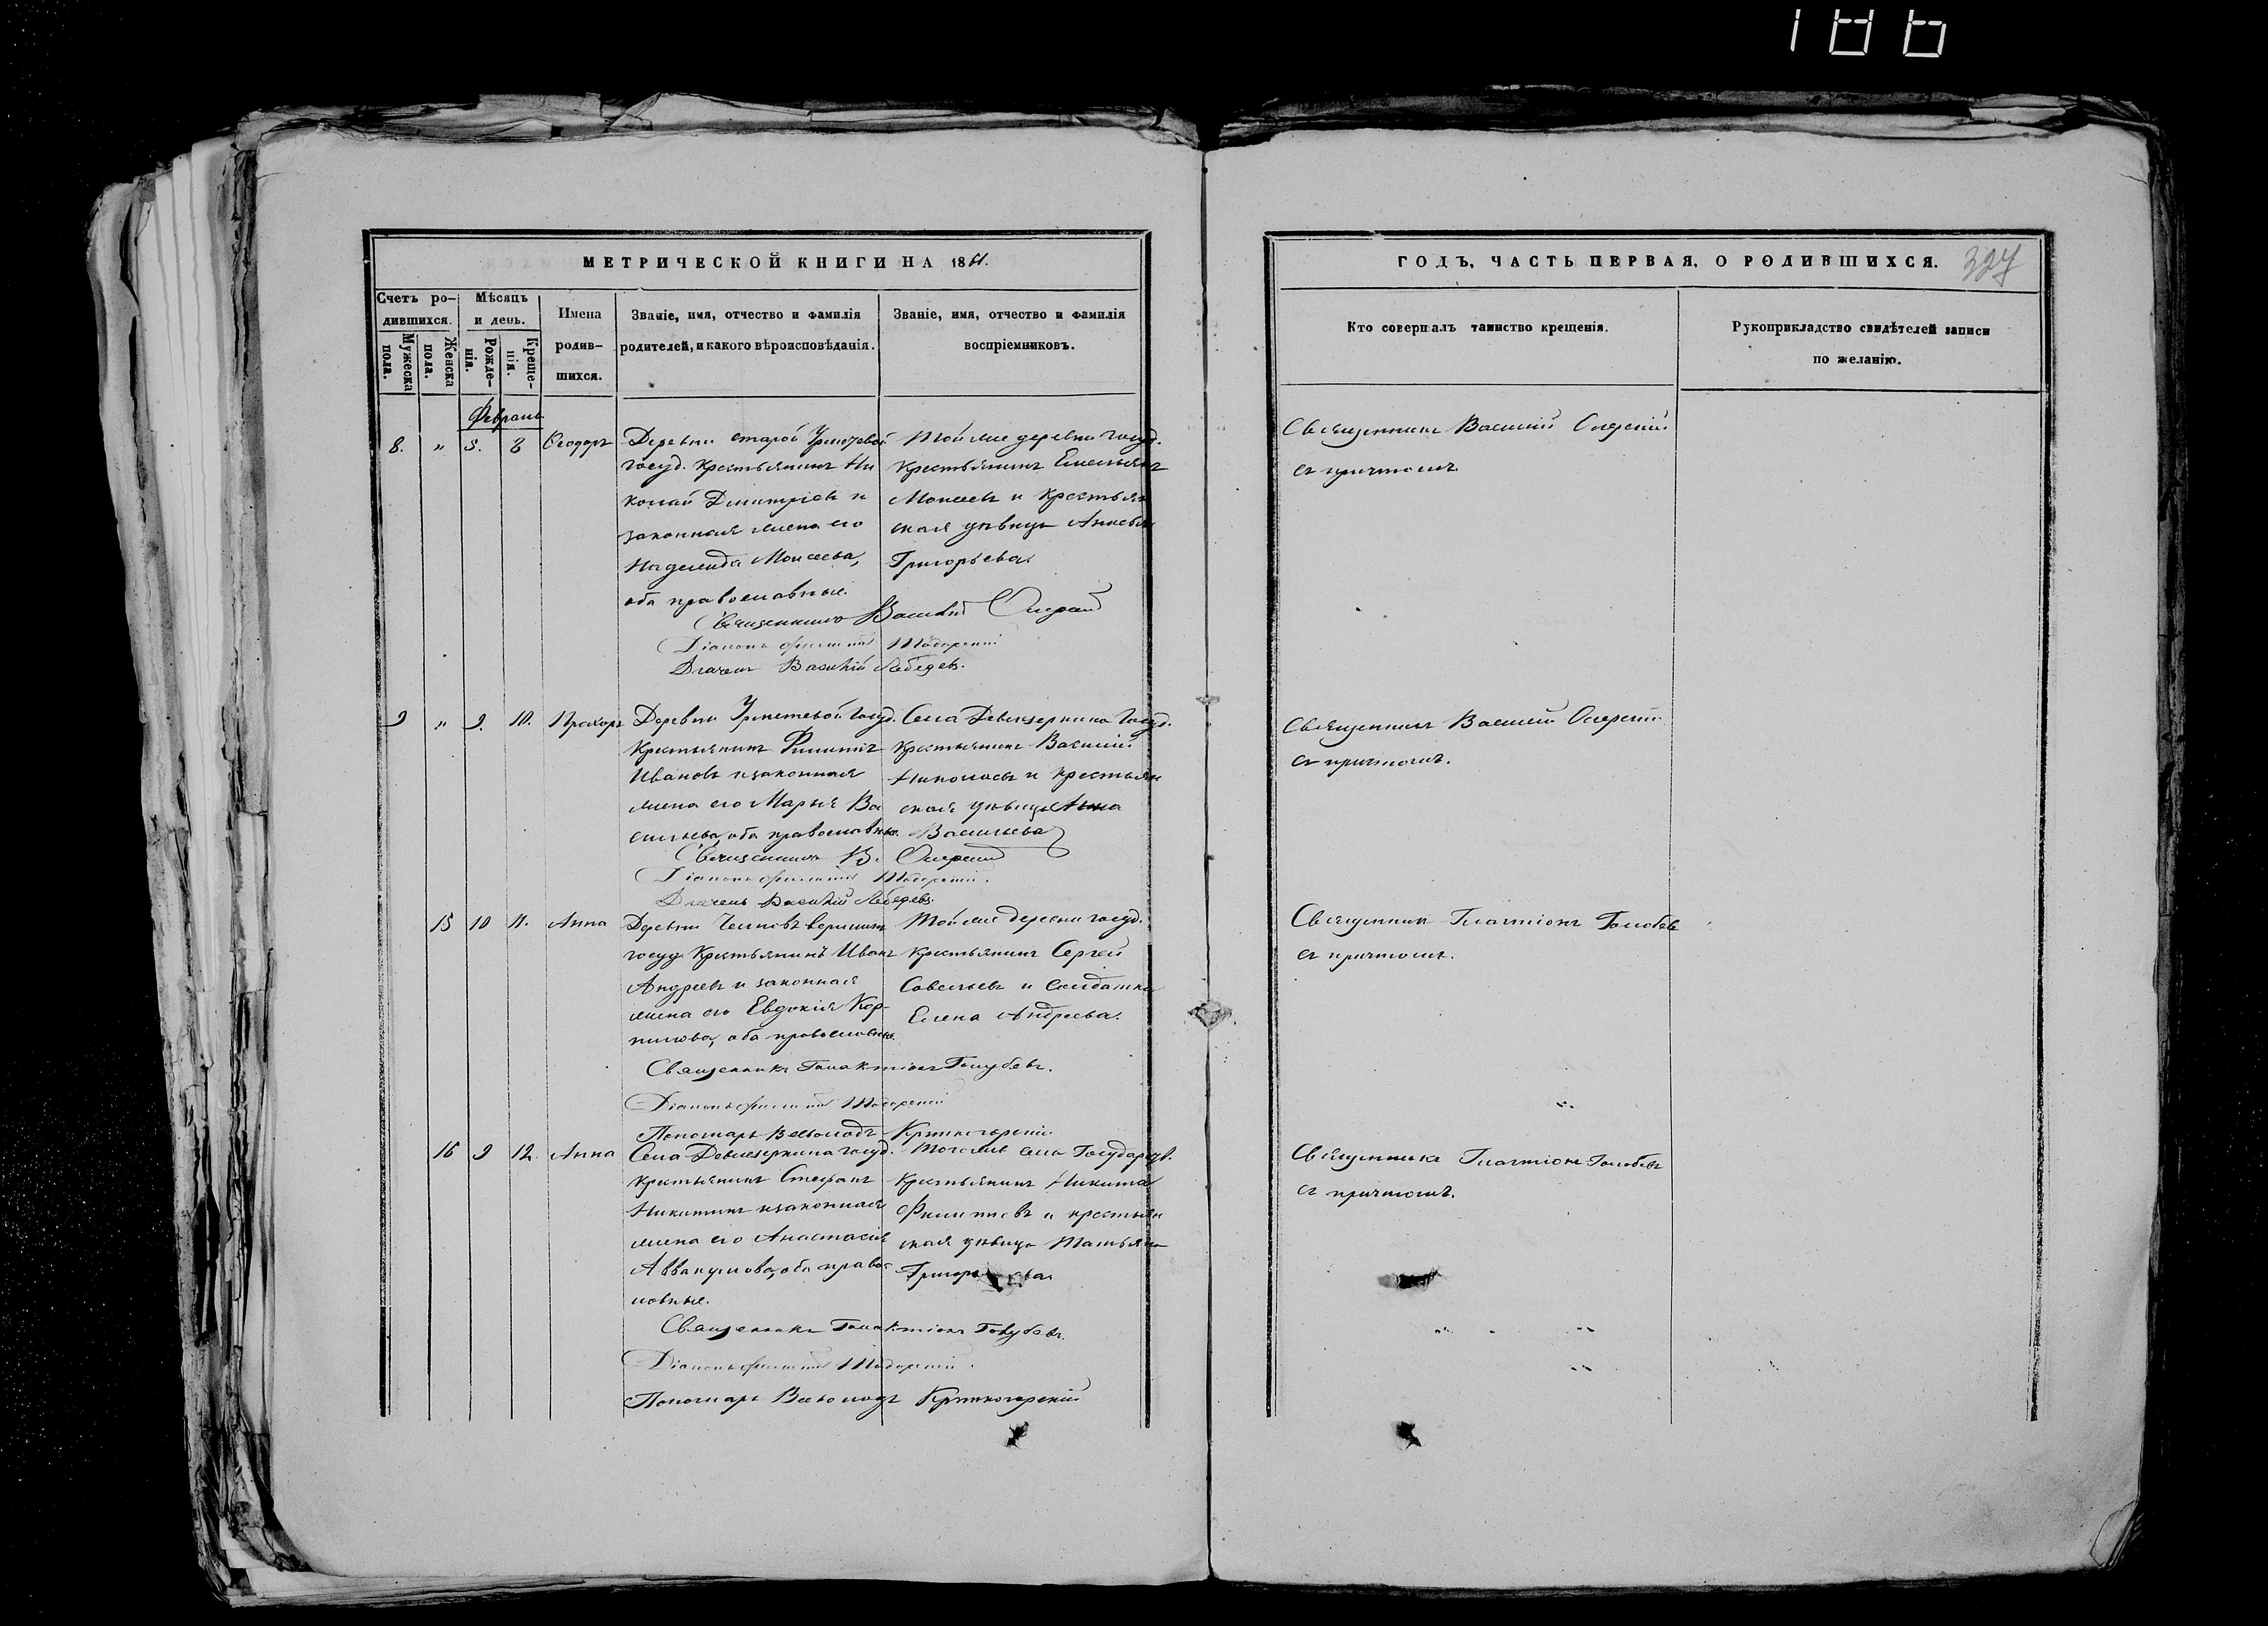 186
МЕТРИЧЕСКОЙ КНИГИ НА 1861.
Счетъ ро-
дившихся.
Мужеска
пола.
Женска
пола.
Мѣсяцъ
и день.
Рожде-
нія.
Креще-
нія.
Имена
родив-
шихся.
Званіе, имя, отчество и фамилія
родителей, и какого вѣроисповѣданія.
Званіе, имя, отчество и фамилія
воспріемниковъ.
Февраль
8. " 5. 8 Ѳеодоръ
Деревни старой
госуд. крестьянинъ Ни
колай Димитріевъ и
законная жена его
Надежда Моисеева,
оба православные.
Той же деревни госуд.
крестьянинъ Емельянъ
Моисеевъ и крестьян
ская дѣвица
Григорьева
Священникъ Василій
Діаконъ
Дьячекъ Василій Лебедевъ.
9 " 9. 10. Прохоръ
Деревни госуд.
крестьянинъ Филиппъ
Ивановъ и законная
жена его Марья Ва
сильева, оба православные.
Села Девлезеркина госуд.
крестьянинъ Василій
Николаевъ и крестьян
ская дѣвица Анна
Васильева
Священникъ В.
Діаконъ
Дьячекъ Василій Лебедевъ.
15 10 11. Анна
Деревни вершины
госуд. крестьянинъ Иванъ
Андреевъ и законная
жена его Евдокія Кор-
нилова, оба православные.
Той же деревни госуд.
крестьянинъ Сергей
Савельевъ и солдатка
Елена Андреева.
Священникъ Галактіонъ Голубевъ.
Діаконъ
Пономарь Всеволодъ Кръткогорскій
16 9 12. Анна
Села Девлезеркина госуд.
крестьянинъ Стефанъ
Никитинъ и законная
жена его Анастасія
Аввакумова, оба право
лавные.
Того же села Государст.
крестьянинъ Никита
Филипповъ и крестьян
ская дѣвица Татьяна
Священникъ Галактіонъ Голубевъ.
Діаконъ
Пономарь Всеволодъ
ГОДЪ, ЧАСТЬ ПЕРВАЯ, О РОДИВШИХСЯ.
327
Кто совершалъ таинство крещенія.
Рукоприкладство свидѣтелей записи
по желанію.
Священникъ Василій
съ причтомъ
Священникъ Василій
съ причтомъ.
Священникъ Галактіонъ Голубевъ
съ причтомъ.
Священникъ Галактіонъ Голубевъ
съ причтомъ.